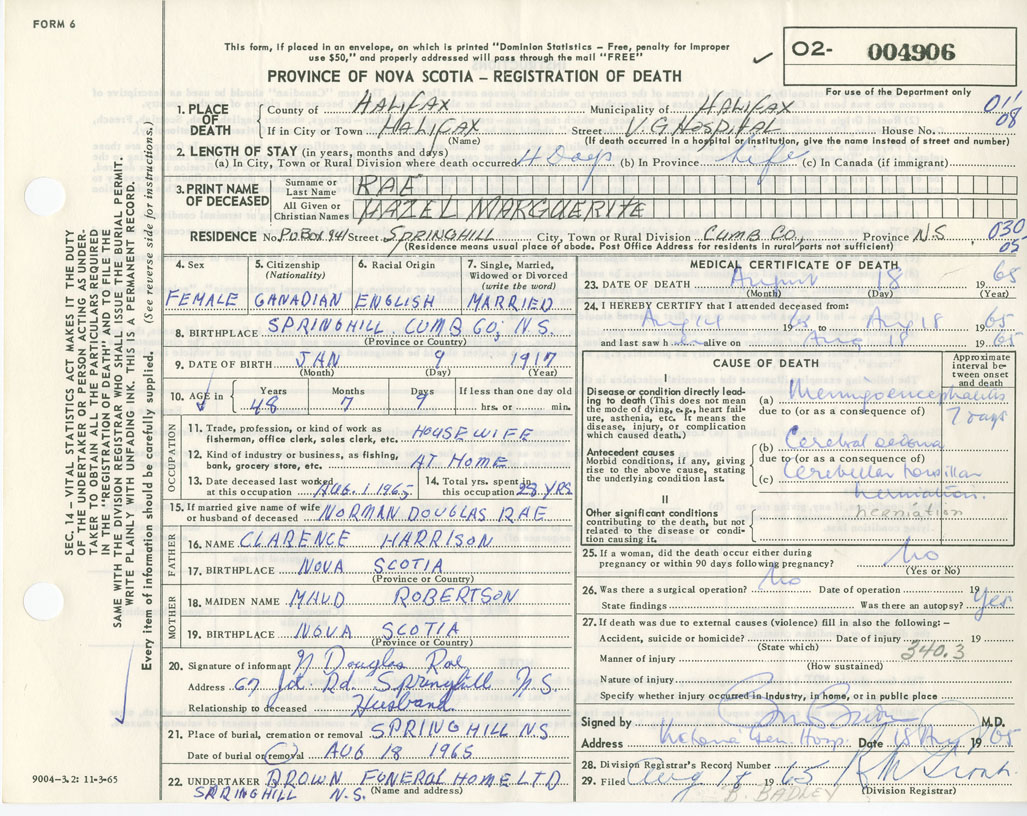 FORM 6
This form, if placed in an envelope, on which is printed "Dominion Statistics – Free, penalty for improper
use $50," and properly addressed will pass through the mail "FREE"
PROVINCE OF NOVA SCOTIA – REGISTRATION OF DEATH
✓ O2- 004906
For use of the Department only
011
08
1. PLACE OF DEATH
County of HALIFAX Municipality of HALIFAX
If in City or Town HALIFAX Street V.G HOSPITAL House No.
(Name) (If death occurred in a hospital or institution, give the name instead of street and number)
2. LENGTH OF STAY (in years, months and days)
(a) In City, Town or Rural Division where death occurred 4 Days (b) In Province Life (c) In Canada (if immigrant)
3. PRINT NAME OF DECEASED
Surname or Last Name RAE
All Given or Christian Names HAZEL MARGUERITE
RESIDENCE No. P.O Box 941 Street SPRINGHILL City, Town or Rural Division CUMB CO., Province N.S 030
(Residence means usual place of abode. Post Office Address for residents in rural parts not sufficient) 05
4. Sex 5. Citizenship (Nationality) 6. Racial Origin 7. Single, Married, Widowed or Divorced (write the word)
FEMALE CANADIAN ENGLISH MARRIED
8. BIRTHPLACE SPRINGHILL CUMB CO; N.S.
(Province or Country)
9. DATE OF BIRTH JAN 9 1917
(Month) (Day) (Year)
10. AGE in Years Months Days If less than one day old
48 7 9 hrs. or min.
OCCUPATION
11. Trade, profession, or kind of work as
fisherman, office clerk, sales clerk, etc. HOUSEWIFE
12. Kind of industry or business, as fishing,
bank, grocery store, etc. AT HOME
13. Date deceased last worked
at this occupation AUG. 1. 1965
14. Total yrs. spent in
this occupation 28 YRS
15. If married give name of wife
or husband of deceased NORMAN DOUGLAS RAE
FATHER
16. NAME CLARENCE HARRISON
17. BIRTHPLACE NOVA SCOTIA
(Province or Country)
MOTHER
18. MAIDEN NAME MAUD ROBERTSON
19. BIRTHPLACE NOVA SCOTIA
(Province or Country)
20. Signature of informant N Douglas Rae
Address 67 Jct. Rd. Springhill N.S.
Relationship to deceased Husband
21. Place of burial, cremation or removal SPRINGHILL NS
Date of burial or removal AUG 18 1965
22. UNDERTAKER BROWN FUNERAL HOME LTD
SPRINGHILL N.S. (Name and address)
MEDICAL CERTIFICATE OF DEATH
23. DATE OF DEATH August 18 1965
(Month) (Day) (Year)
24. I HEREBY CERTIFY that I attended deceased from:
Aug 14 1965 to Aug 18 1965
and last saw h er alive on Aug 18 1965
CAUSE OF DEATH
Approximate interval between onset and death
I
Disease or condition directly leading
to death (This does not mean
the mode of dying, e.g., heart failure,
asthenia, etc. It means the
disease, injury, or complication
which caused death.)
(a) Meningoencephalitis 7 days
due to (or as a consequence of)
Antecedent causes
Morbid conditions, if any, giving
rise to the above cause, stating
the underlying condition last.
(b) Cerebral edema
due to (or as a consequence of)
(c) Cerebellar tonsillar
herniation.
II
herniation
Other significant conditions
contributing to the death, but not
related to the disease or condition
causing it.
25. If a woman, did the death occur either during
pregnancy or within 90 days following pregnancy? No
(Yes or No)
26. Was there a surgical operation? No Date of operation 19
State findings Was there an autopsy? Yes
27. If death was due to external causes (violence) fill in also the following: –
Accident, suicide or homicide? Date of injury 19
(State which) 340.3
Manner of injury
(How sustained)
Nature of injury
Specify whether injury occurred in industry, in home, or in public place
Signed by M.D.
Address Victoria Gen Hosp. Date 18 Aug 1965
28. Division Registrar's Record Number
29. Filed Aug 18 1965
B. BADLEY (Division Registrar)
SEC. 14 – VITAL STATISTICS ACT MAKES IT THE DUTY
OF THE UNDERTAKER OR PERSON ACTING AS UNDERTAKER
TO OBTAIN ALL THE PARTICULARS REQUIRED
IN THE "REGISTRATION OF DEATH" AND TO FILE THE
SAME WITH THE DIVISION REGISTRAR WHO SHALL ISSUE THE BURIAL PERMIT.
WRITE PLAINLY WITH UNFADING INK. THIS IS A PERMANENT RECORD.
Every item of information should be carefully supplied. (See reverse side for instructions.)
9004-3.2: 11-3-65